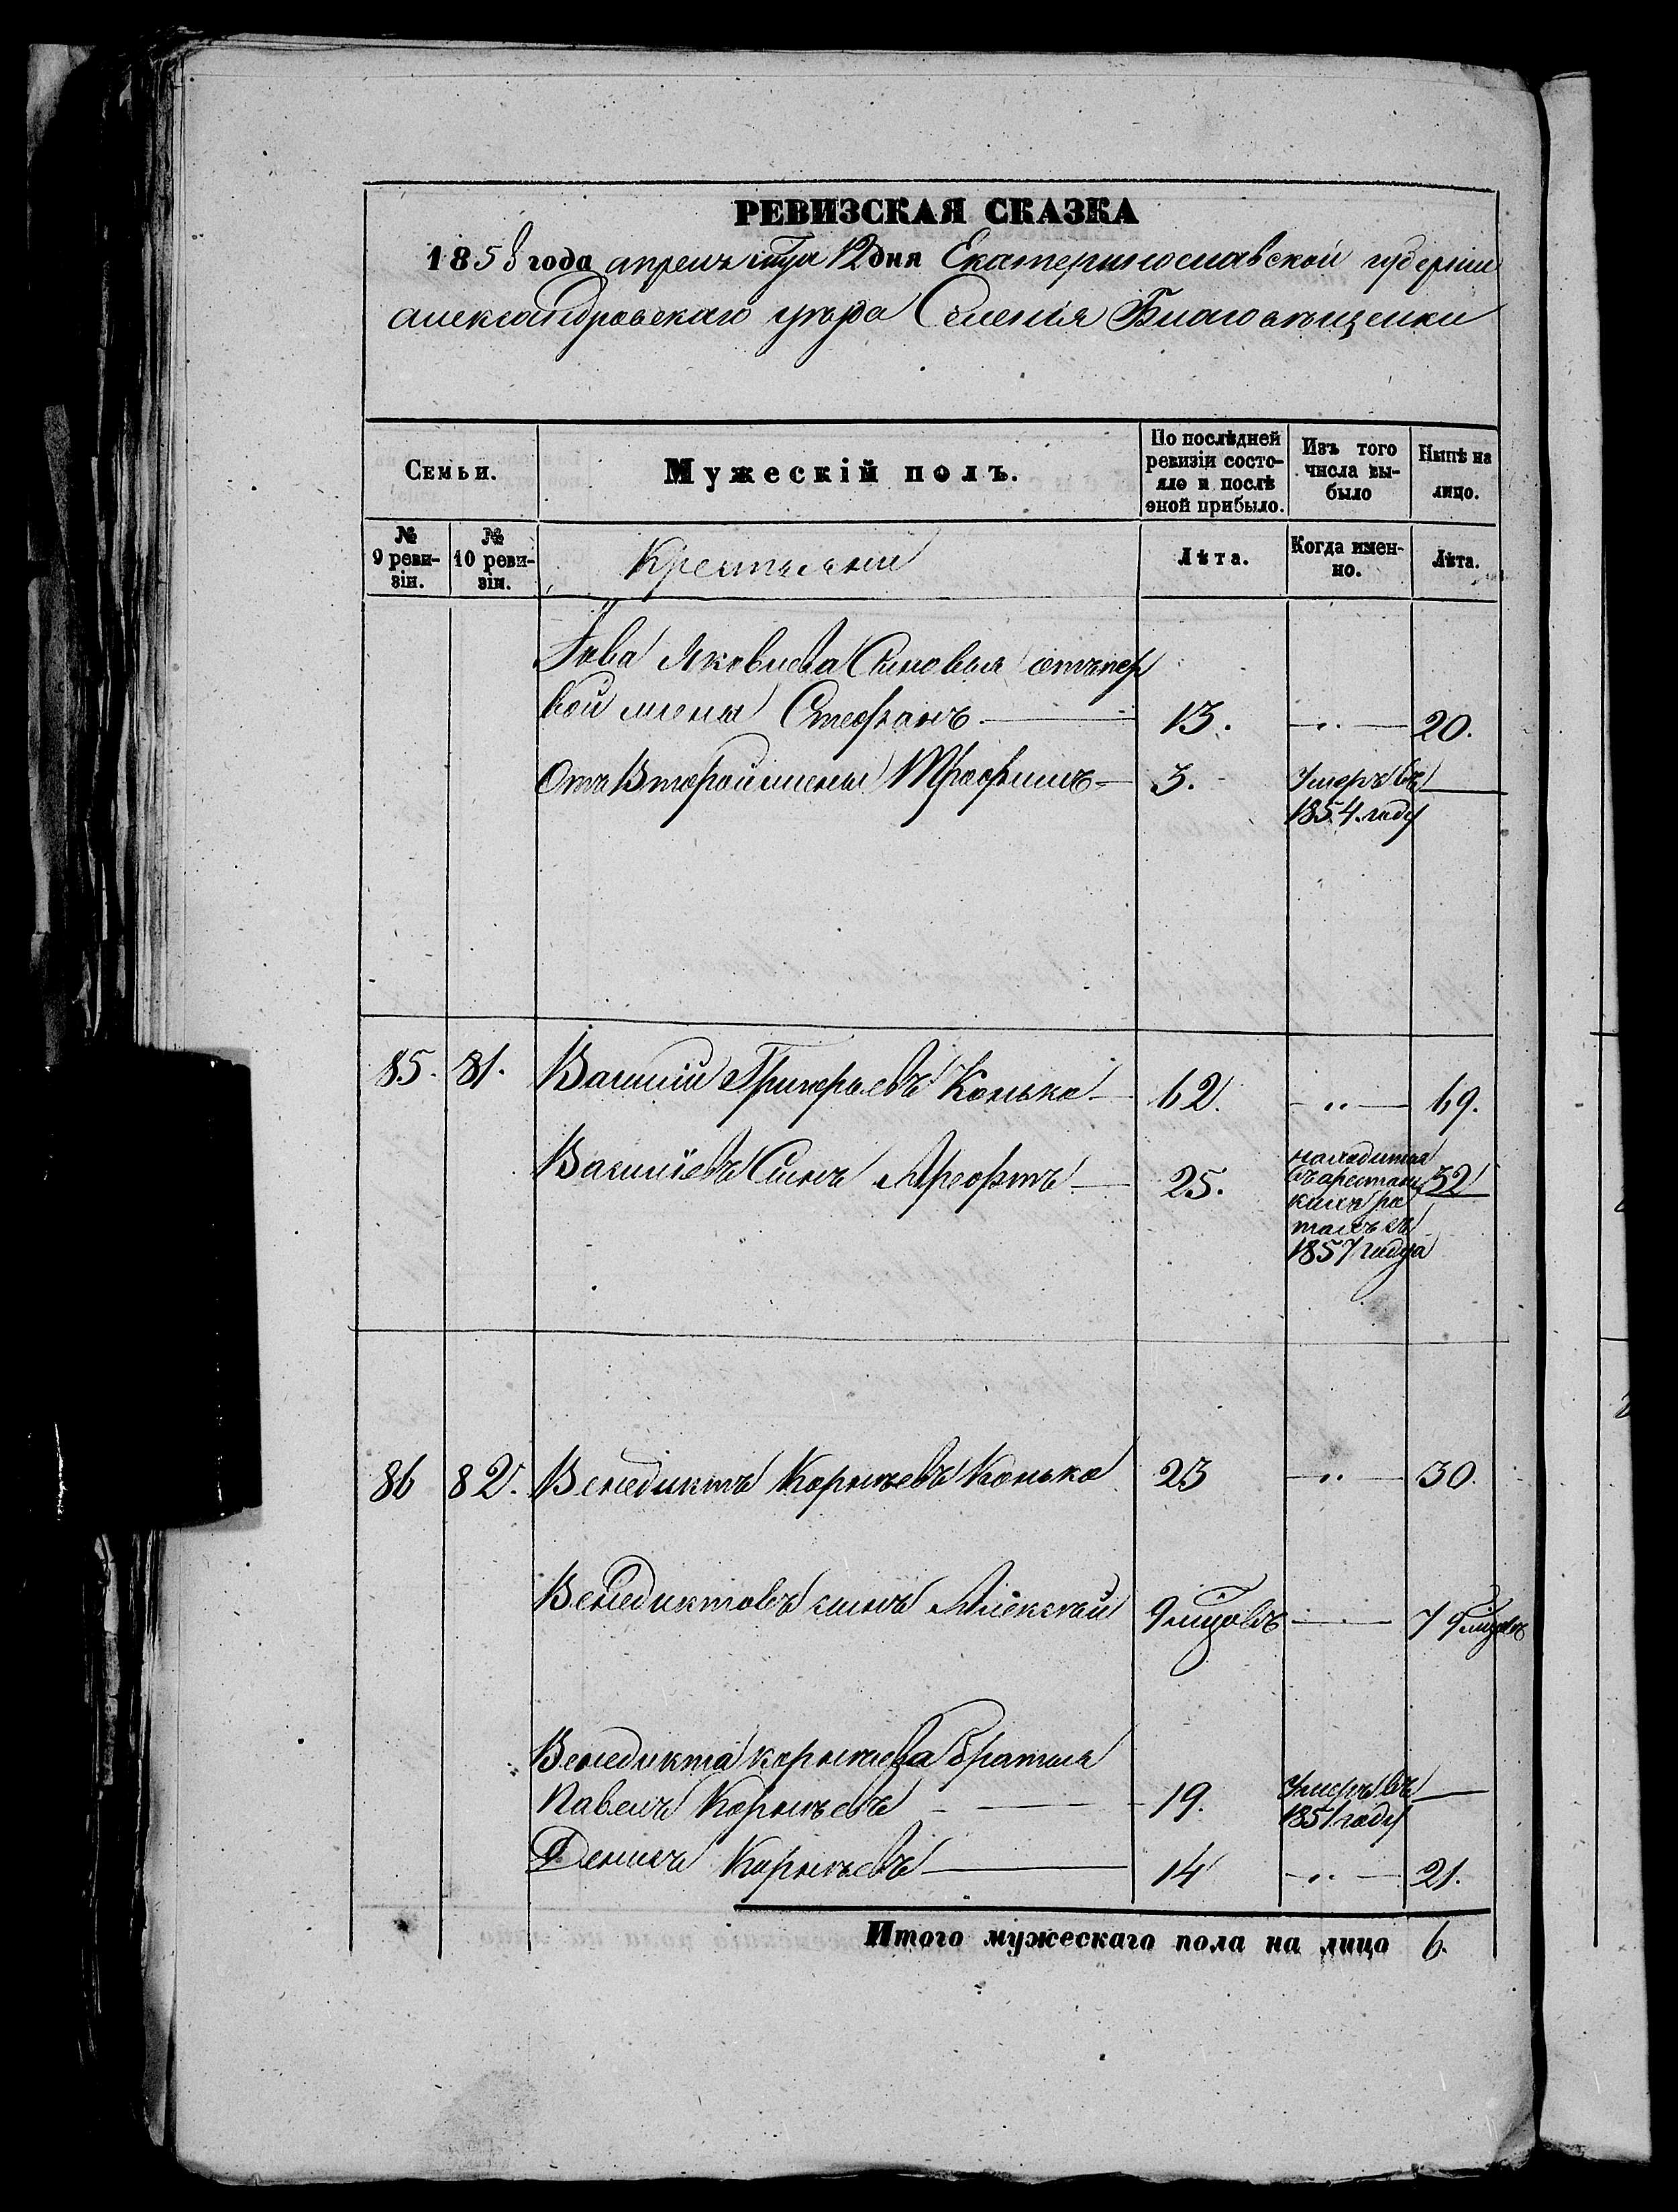 РЕВИЗСКАЯ СКАЗКА
1858 года апреля 12 дня Екатеринославской губернии
Александровскаго уезда Селенія Благовещенки
Семьи.
Мужескій полъ.
По послѣдней ревизіи состояло и послѣ оной прибыло.
Изъ того числа выбыло
Нынѣ на лицо.
№ 9 ревизіи.
№ 10 ревизіи.
Крестьяни
Лѣта.
Когда именно.
Лѣта.
Іова Яковлева Сыновья отъ пер
вой жены Стефанъ 13. 20.
Отъ Второй жены Трофимъ 3. Умеръ въ
1854 году
85. 81. Василий Григорьевъ Конько 62. 69.
Василіевъ Сынъ Арефтъ 25. находится 32
въ арестанс
кихъ ро
тахъ съ
1857 года
86 82. Венедиктъ Корнѣевъ Конько 23 30.
Венедиктовъ сынъ Алексѣй 9 мцовъ 7 9 мцовъ
Венедикта Корнѣева братья
Павелъ Корнѣевъ 19. Умеръ въ
1851 году
Денисъ Корнѣевъ 14 21.
Итого мужескаго пола на лицо 6.